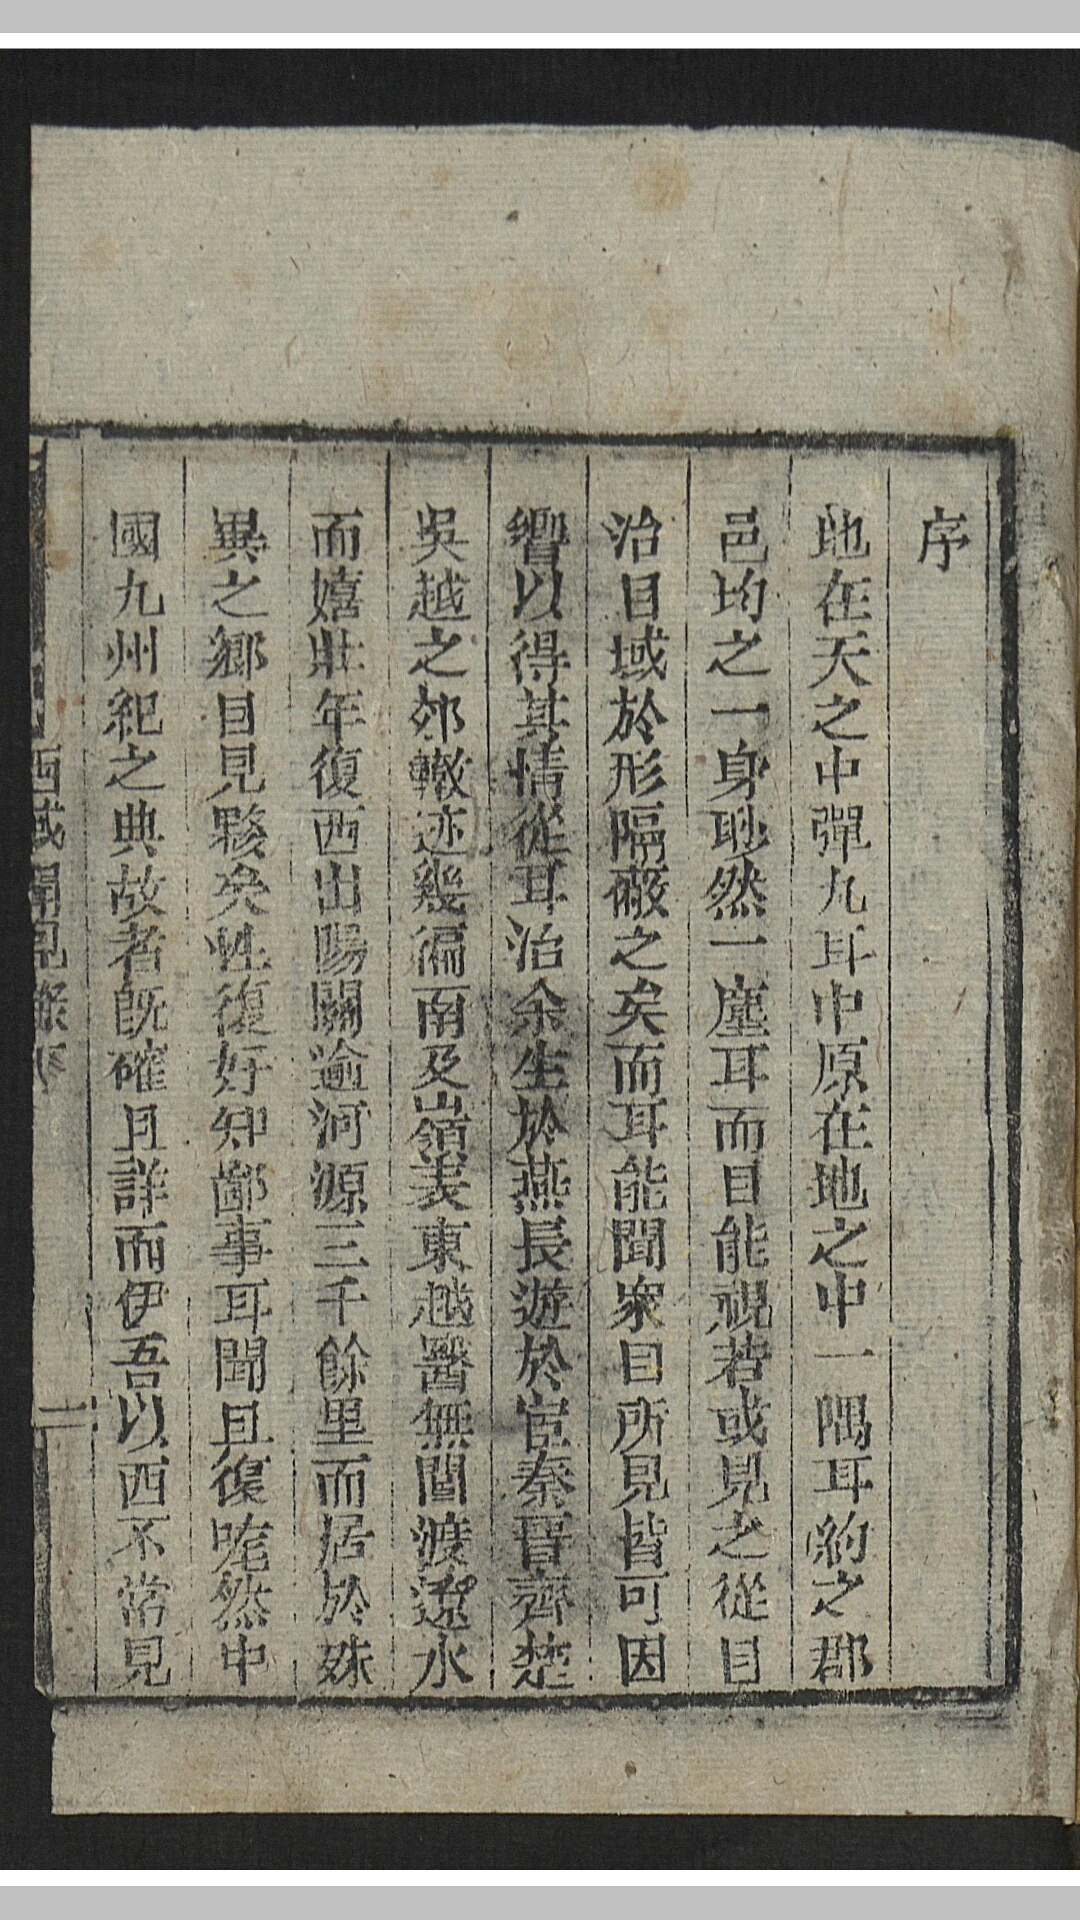 序
地在天之中彈丸耳中原在地之中一隅耳約之郡
邑均之一身眇然一塵耳而目能視若或見之從目
治目域於形隔蔽之矣而耳能聞衆目所見皆可因
響以得其情從耳治余生於燕長遊於宦秦晉齊楚
吳越之郊轍迹幾徧南及嶺表東越醫無閭渡遼水
而嬉壯年復西出陽關逾河源三千餘里而居於殊
異之鄉目見夥矣性復好知鄙事耳聞且復咙然中
國九州紀之典故者旣確且詳而伊吾以西不常見
西域聞見錄序